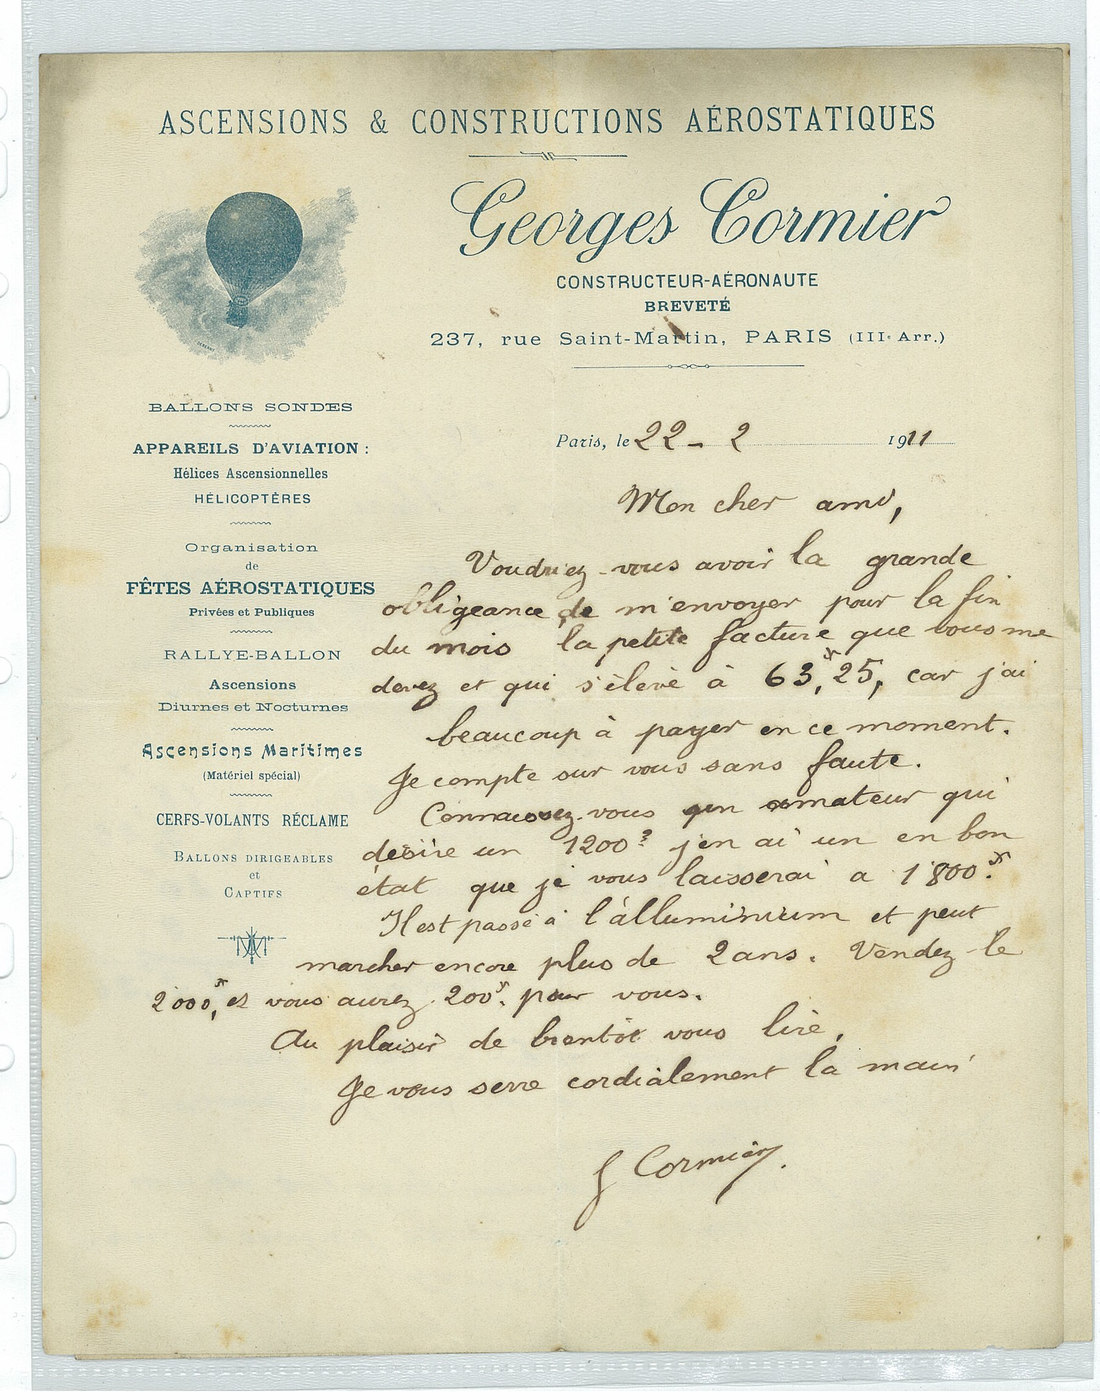 ASCENSIONS & CONSTRUCTIONS AÉROSTATIQUES
Georges Cormier
CONSTRUCTEUR-AÉRONAUTE
BREVETÉ
237, rue Saint-Martin, PARIS (IIIe Arr.)
BALLONS SONDES
APPAREILS D'AVIATION :
Hélices Ascensionnelles
HÉLICOPTÈRES
Organisation
de
FÊTES AÉROSTATIQUES
Privées et Publiques
RALLYE-BALLON
Ascensions
Diurnes et Nocturnes
Ascensions Maritimes
(Matériel spécial)
CERFS-VOLANTS RÉCLAME
BALLONS DIRIGEABLES
et
CAPTIFS
Paris, le 22 - 2 1911
Mon cher ami,
Voudriez-vous avoir la grande
obligeance de m'envoyer pour la fin
du mois la petite facture que vous me
devez et qui s'élève à 63,fr25, car j'ai
beaucoup à payer en ce moment.
Je compte sur vous sans faute.
Connaissez-vous un amateur qui
désire un 1200³ j'en ai un en bon
état que je vous laisserai a 1800.fr
Il est passé à l'alluminium et peut
marcher encore plus de 2 ans. Vendez-le
2000,fr et vous aurez 200fr. pour vous.
Au plaisir de bientôt vous lire,
Je vous serre cordialement la main
G Cormier.